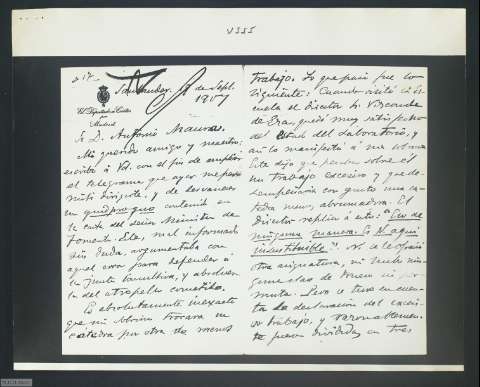 V355
Santander 9 de Sept.
1907
El Diputado a Cortes
por
Madrid
Sr D. Antonio Maura.
Mi querido amigo y maestro:
escribo a Vd. con el fin de ampliar
el telegrama que ayer me permití
dirigirle, y de desvanecer
un quid pro quo contenido en
la carta del señor Ministro de
Fomento. Este, mal informado
sin duda, argumentaba con
aquel error para defender á
la Junta consultiva, y absolverla
del atropello cometido.
Es absolutamente inexacto
que mi sobrino trocara su
cátedra por otra de menos
trabajo. Lo que pasó fue lo
siguiente: Cuando visitó la Escuela
el Director Sr Vizconde
de Eza, quedó muy satisfecho
del estado del laboratorio, y
así lo manifestó a mi sobrino.
Este dijo que pesaba sobre él
un trabajo excesivo y que desempeñaría
con gusto una cátedra
menos abrumadora. El
Director replicó a esto: "Eso de
ninguna manera. Es V. aquí
insustituible". No se le ofreció
otra asignatura, ni hubo
de
permuta. Pero se tuvo en cuenta
la declaración del excesivo
trabajo, y razonablemente
fueron divididas en tres